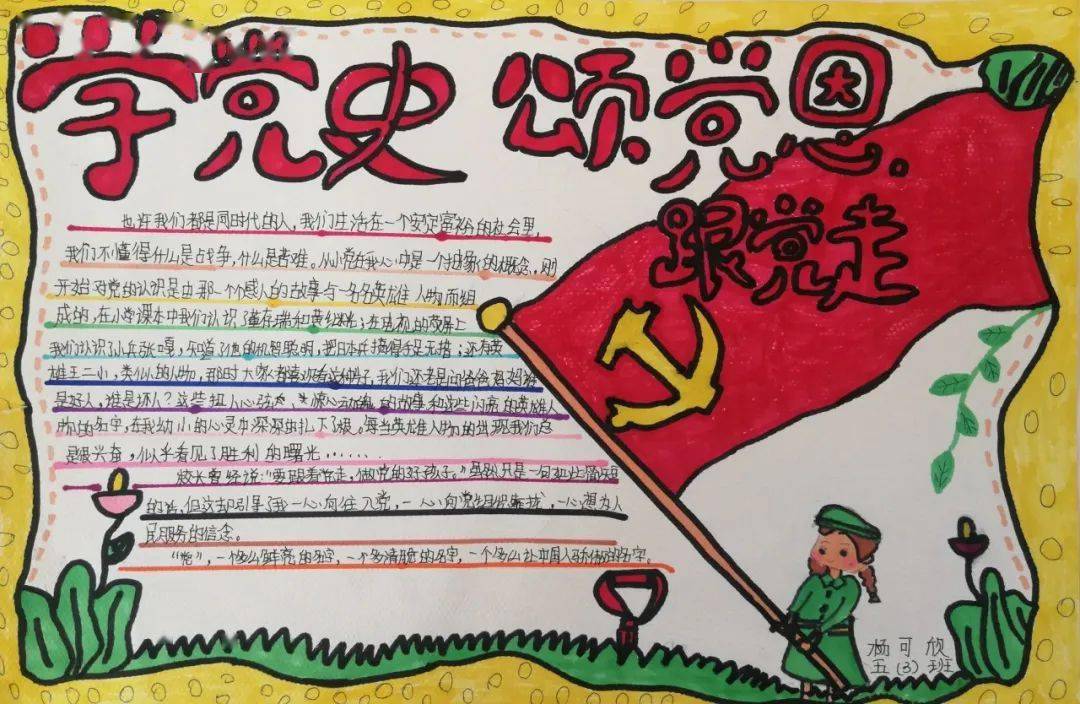 学党史 颂党恩
跟党走
也许我们都是同时代的人，我们生活在一个安定富裕的社会里，
我们不懂得什么是战争，什么是苦难。从小党在我心中是一个抽象的概念，刚
开始对党的认识是由那一个个感人的故事与一名名英雄人物而组
成的，在小学课本中我们认识了董存瑞和黄继光；在电视的荧屏上
我们认识了小兵张嘎，知道了他的机智聪明，把日本兵搞得手足无措；还有英
雄王二小，类似的人物，那时大家都喜欢看这片子，我们还老是问爸爸妈妈谁
是好人，谁是坏人？这些扣人心弦、惊心动魄的故事和这些闪亮的英雄人
物的名字，在我幼小的心灵中深深地扎下了根。每当英雄人物的出现我们总
是很兴奋，似乎看见了胜利的曙光......
校长曾经说：“要跟着党走，做党的好孩子。”虽然只是一句
的话，但这却引导了我一心向往入党，一心向党组织靠拢，一心想为人
民服务的信念。
“党”，一个多么鲜亮的名字，一个多清脆的名字，一个多么让中国人骄傲的名字。
杨可欣
五（3）班